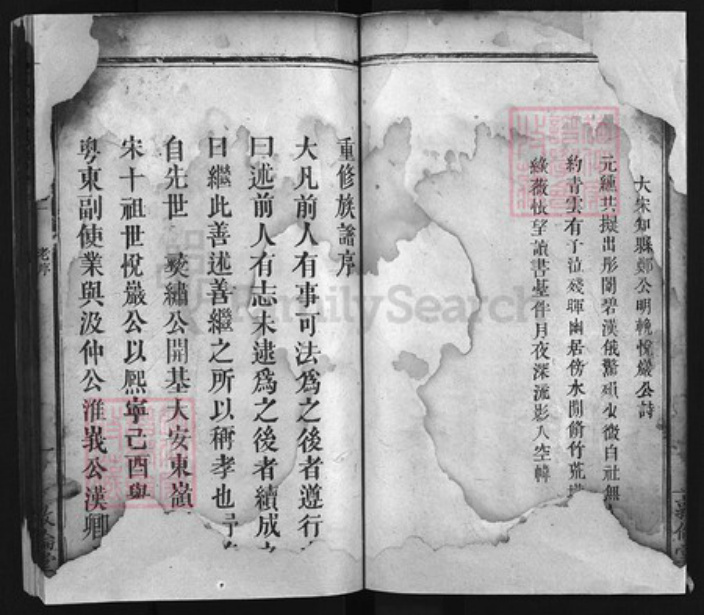 大宋知縣鄭公明輓悅巖公詩
元纁共擬出彤闈碧漢俄驚殞少微白社無
約青雲有子泣殘暉幽居傍水閒脩竹荒
綠薇悵望讀書臺伴月夜深流影入空幃
重修族譜序
大凡前人有事可法為之後者遵行
曰述前人有志未逮為之後者續成
曰繼此善述善繼之所以稱孝也
自先世 奕繡公開基大安東嶺
宋十祖世悅巖公以熙寧己酉與
粵東副使業與汲仲公淮峩公漢卿
老序
FamilySearch